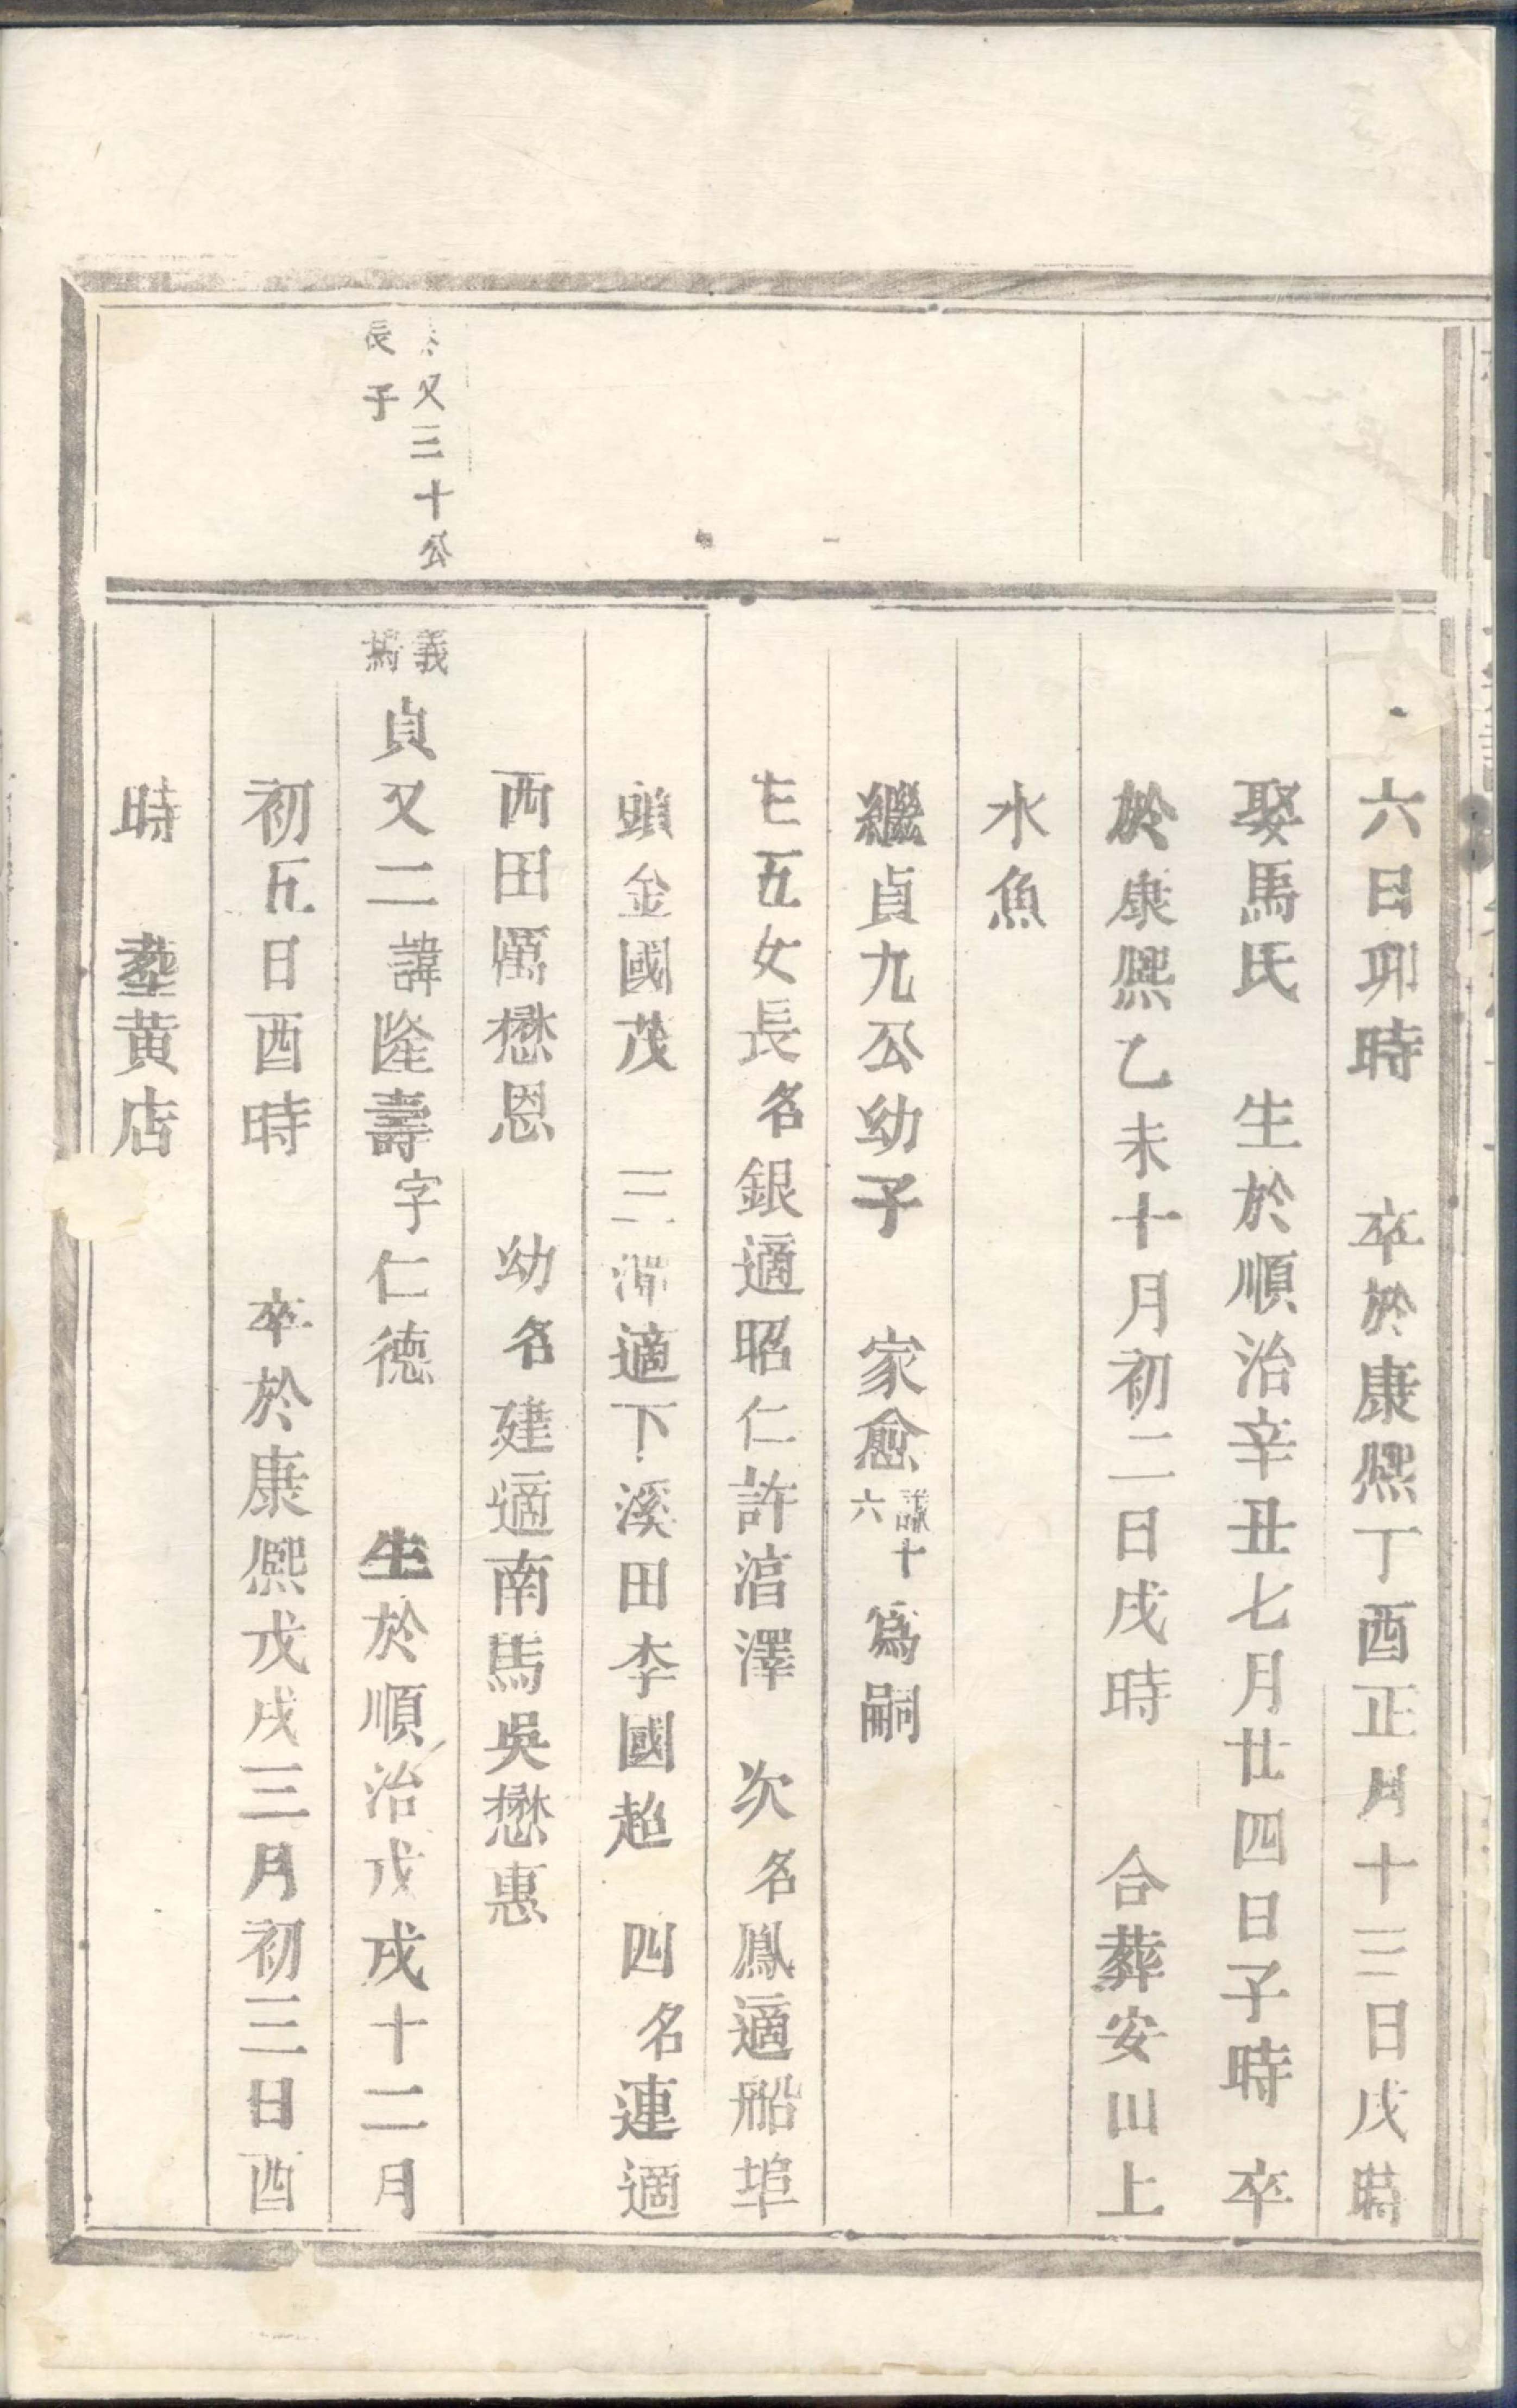 六日卯時 卒於康熙丁酉正月十三日戌時
娶馬氏 生於順治辛丑七月廿四日子時 卒
於康熙乙未十月初二日戌時 合葬安山上
水魚
繼貞九公幼子 家愈議十六為嗣
生五女長名銀適昭仁許涫澤 次名鳳適船埠
頭金國茂 三 適下溪田李國超 四名連適
西田厲懋恩 幼名建適南馬吳懋惠
又三十公長子
義塢 貞又二諱隆壽字仁德 生於順治戊戌十二月
初五日酉時 卒於康熙戊戌三月初三日酉
時 塟黄店